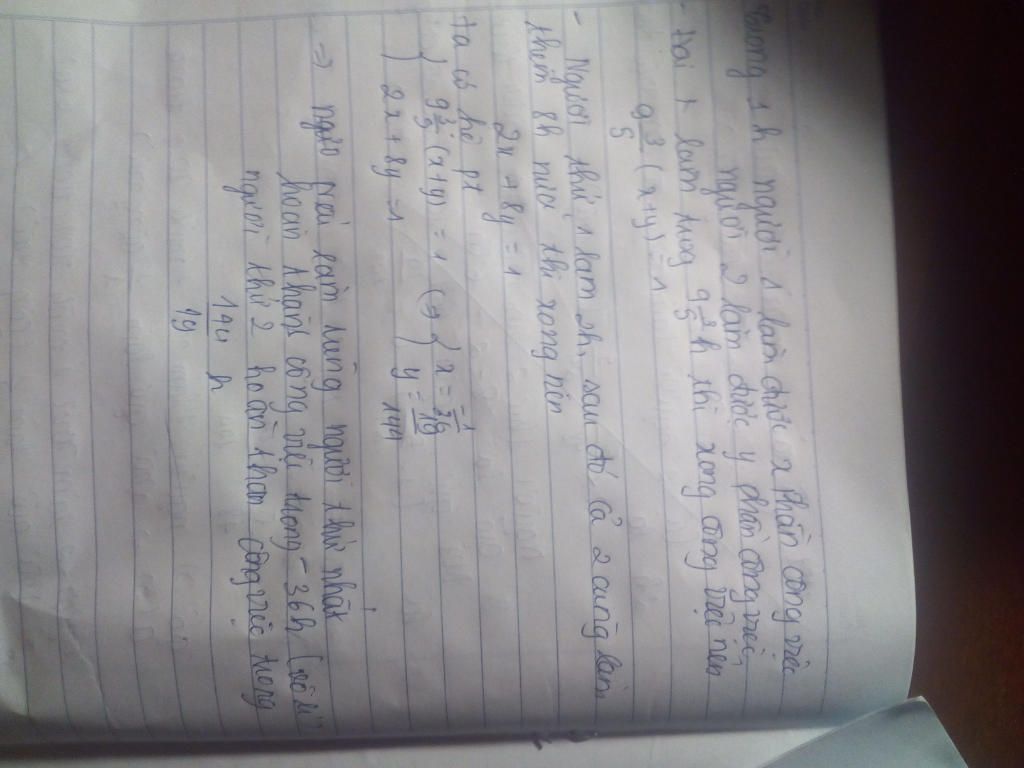 Trong 1 h người 1 làm được x phần công việc
người 2 làm được y phần công việc
- Đội + làm trong 9 3/5 h thì xong công việc nên
9 3/5 (x+y) = 1
- Người thứ 1 làm 2h, sau đó cả 2 cùng làm
thêm 8h nữa thì xong nên
2x + 8y = 1
ta có hệ pt
{ 9 3/5 (x+y) = 1 (=) { x = -1/36
{ 2x + 8y = 1 y = 19/144
=> người làm từng người thứ nhất
hoàn thành công việc trong - 36h (vô lí
người thứ 2 hoàn thành công việc trong
144/19 h